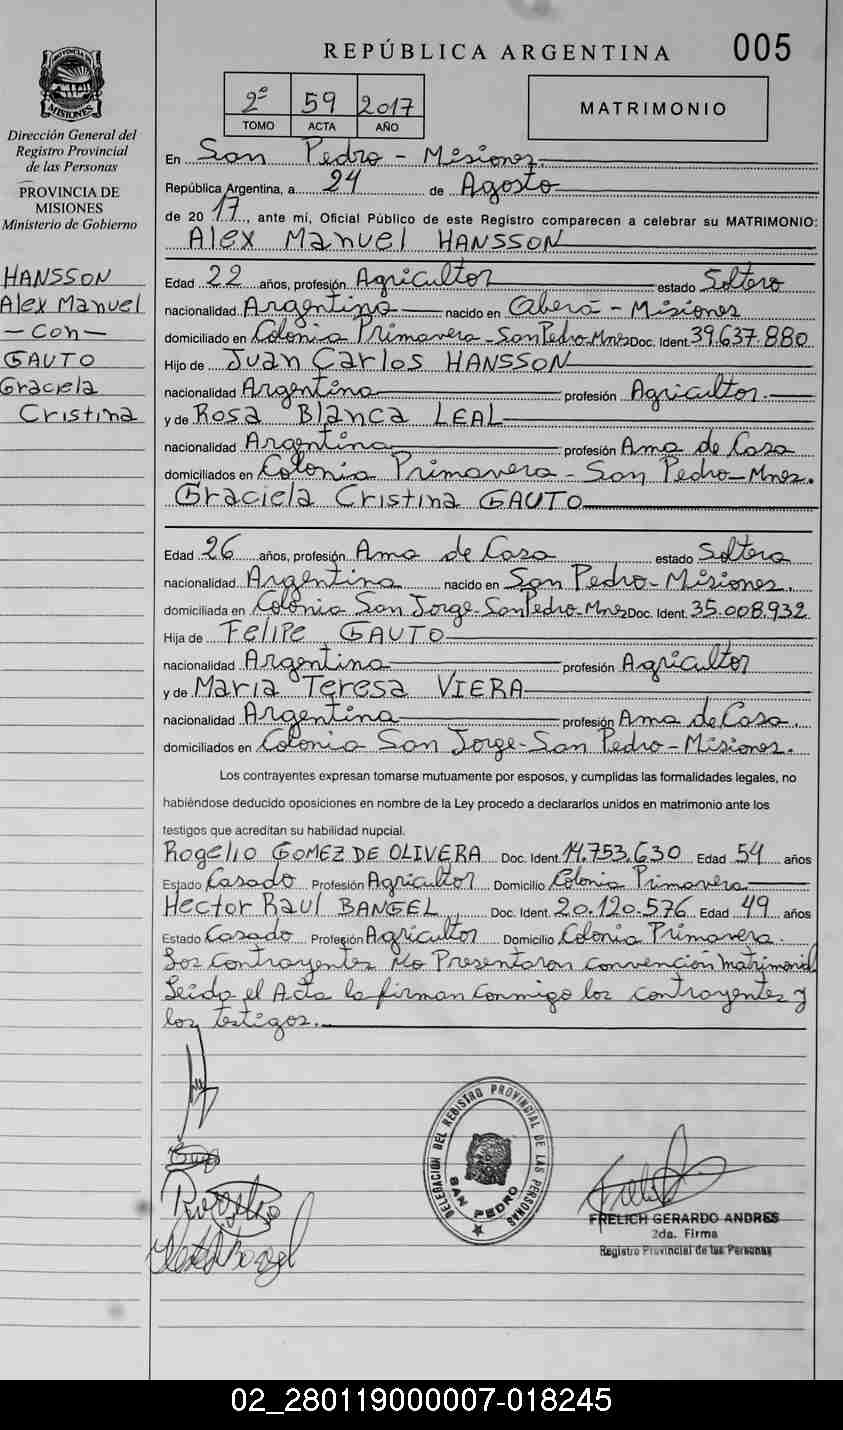 REPÚBLICA ARGENTINA
005
PROVINCIA DE MISIONES
Dirección General del
Registro Provincial
de las Personas
PROVINCIA DE
MISIONES
Ministerio de Gobierno
HANSSON
Alex Manuel
- con -
GAUTO
Graciela
Cristina
2º 59 2017
TOMO ACTA AÑO
MATRIMONIO
En San Pedro - Misiones
República Argentina, a 24 de Agosto
de 2017, ante mi, Oficial Público de este Registro comparecen a celebrar su MATRIMONIO:
Alex Manuel HANSSON
Edad 22 años, profesión Agricultor estado Soltero
nacionalidad Argentina nacido en Caberá - Misiones
domiciliado en Colonia Primavera - San Pedro - Mnes Doc. Ident. 39.637.880
Hijo de Juan Carlos HANSSON
nacionalidad Argentina profesión Agricultor
y de Rosa Blanca LEAL
nacionalidad Argentina profesión Ama de Casa
domiciliados en Colonia Primavera - San Pedro - Mnes.
Graciela Cristina GAUTO
Edad 26 años, profesión Ama de Casa estado Soltera
nacionalidad Argentina nacido en San Pedro - Misiones.
domiciliada en Colonia San Jorge - San Pedro - Mnes Doc. Ident. 35.008.932
Hija de Felipe GAUTO
nacionalidad Argentina profesión Agricultor
y de Maria Teresa VIERA
nacionalidad Argentina profesión Ama de Casa.
domiciliados en Colonia San Jorge - San Pedro - Misiones.
Los contrayentes expresan tomarse mutuamente por esposos, y cumplidas las formalidades legales, no
habiéndose deducido oposiciones en nombre de la Ley procedo a declararlos unidos en matrimonio ante los
testigos que acreditan su habilidad nupcial.
Rogelio GOMEZ DE OLIVERA Doc. Ident. 14.753.630 Edad 54 años
Estado Casado Profesión Agricultor Domicilio Colonia Primavera
Hector Raul BANGEL Doc. Ident. 20.120.576 Edad 49 años
Estado Casado Profesión Agricultor Domicilio Colonia Primavera.
Los contrayentes No Presentaron convención matrimonial
Leida el Acta la firman conmigo los contrayentes y
los testigos.
DELEGACION DEL REGISTRO PROVINCIAL DE LAS PERSONAS
SAN PEDRO
FRELICH GERARDO ANDRES
2da. Firma
Registro Provincial de las Personas
02_280119000007-018245